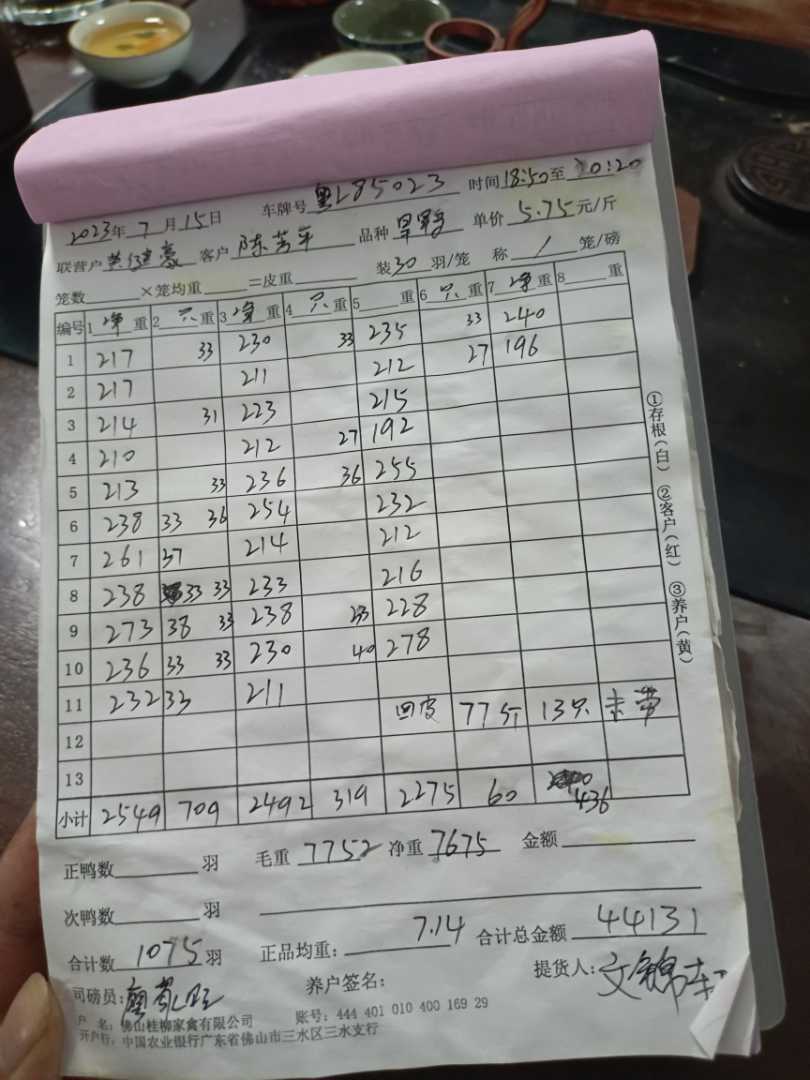 2023年7月15日 车牌号 粤L85023 时间 18:50至20:20
联营户 客户 陈芳平 品种 单价 5.75 元/斤
笼数 ×笼均重 =皮重 装30羽/笼 称 / 笼/磅
编号 1 净重 2 只重 3 净重 4 只重 5 重 6 只重 7 净重 8 重
1 217 33 230 33 235 33 240
2 217 211 212 27 196
3 214 31 223 215
4 210 212 27 192
5 213 33 236 36 255
6 238 33 36 254 232
7 261 37 214 212
8 238 33 33 233 216
9 273 38 33 238 33 228
10 236 33 33 230 40 278
11 232 33 211 回皮 77斤 13只 未带
12
13
小计 2549 709 2492 319 2275 60 436
①存根(白) ②客户(红) ③养户(黄)
正鸭数 羽 毛重 7752 净重 7675 金额
次鸭数 羽
合计数 1075 羽 正品均重: 7.14 合计总金额 44131
司磅员: 养户签名: 提货人:
户 名: 佛山桂柳家禽有限公司 账号: 444 401 010 400 169 29
开户行: 中国农业银行广东省佛山市三水区三水支行